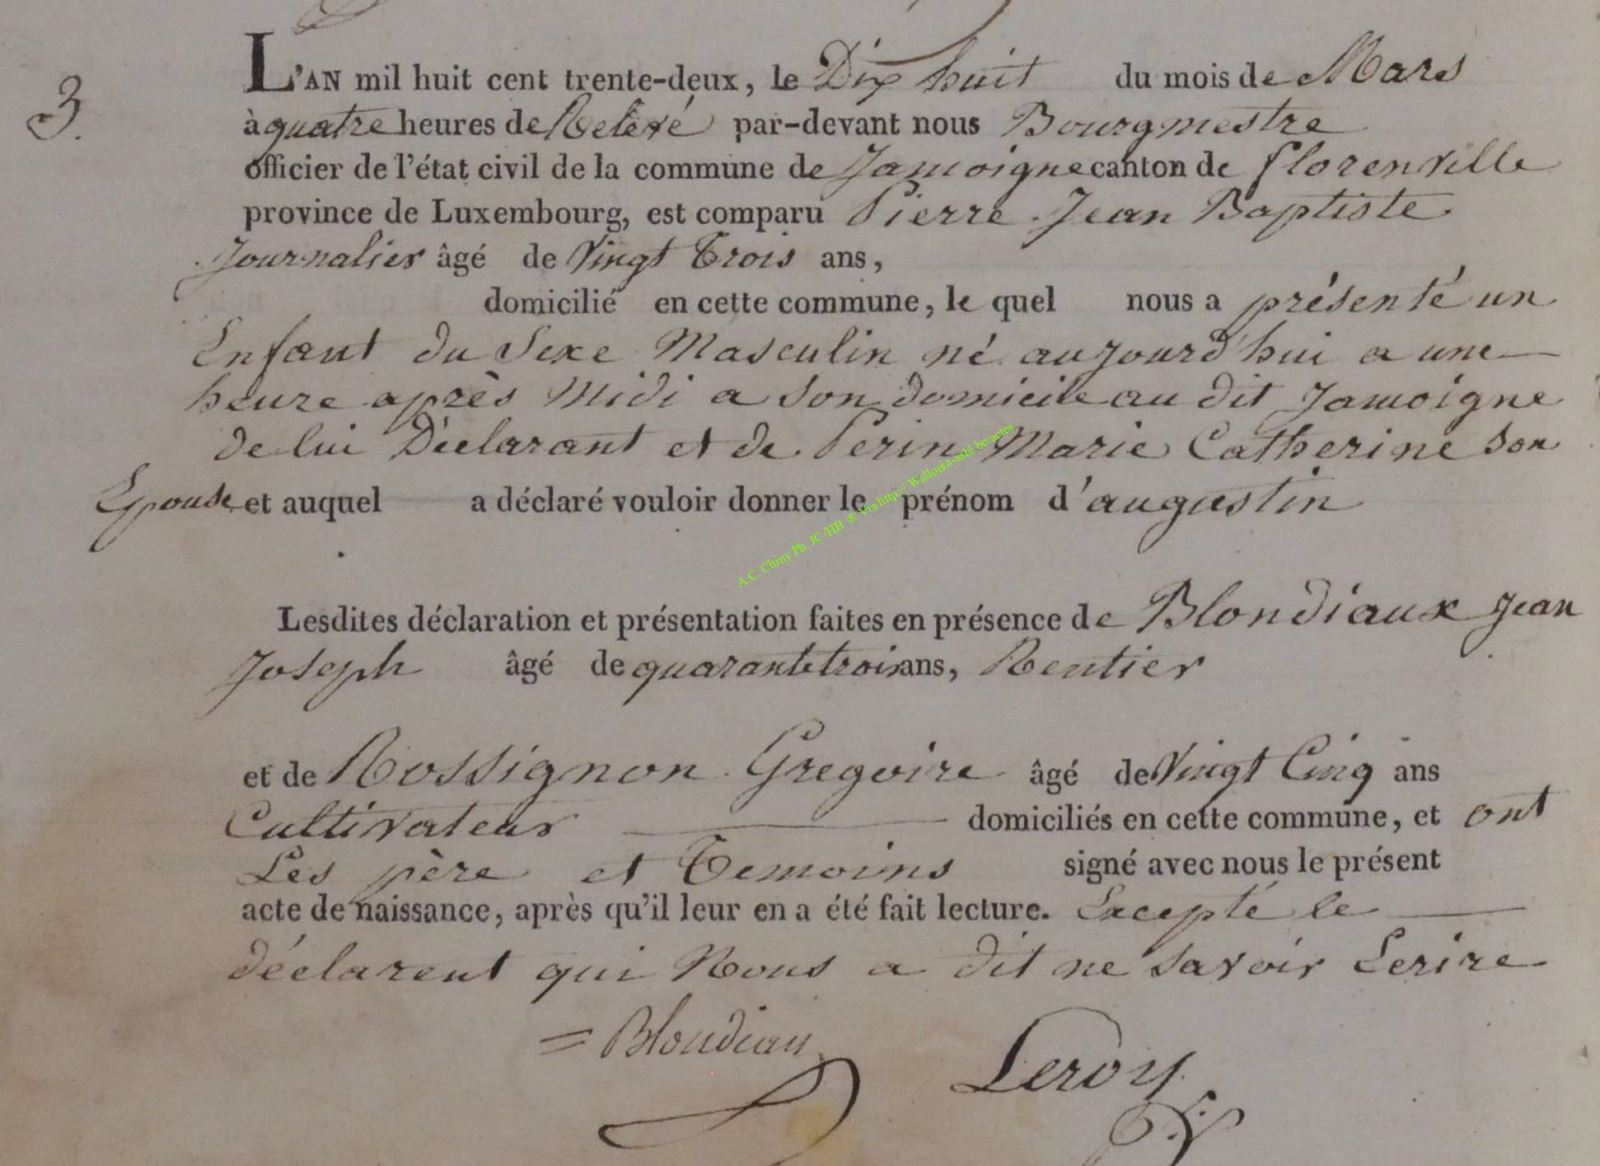 3.
L'AN mil huit cent trente-deux, le Dix huit du mois de Mars
à quatre heures de Relevé par-devant nous Bourgmestre
officier de l'état civil de la commune de Jamoigne canton de florenville
province de Luxembourg, est comparu Pierre Jean Baptiste
Journalier âgé de Vingt Trois ans,
domicilié en cette commune, le quel nous a présenté un
Enfant du Sexe Masculin né aujourd'hui a une
heure après Midi a son domicile au dit Jamoigne
de lui Déclarant et de Perin Marie Catherine son
Epouse et auquel a déclaré vouloir donner le prénom d'augustin
A.C Chiny Ph JC/HB & Via http// Wallonia-asbl-be/actes
Lesdites déclaration et présentation faites en présence de Blondiaux Jean
Joseph âgé de quarante trois ans, Rentier
et de Rossignon Gregoire âgé de Vingt Cinq ans
Cultivateur domiciliés en cette commune, et ont
Les père et Temoins signé avec nous le présent
acte de naissance, après qu'il leur en a été fait lecture. Excepté le
déclarent qui Nous a dit ne savoir Ecrire
= Blondiau Leroy